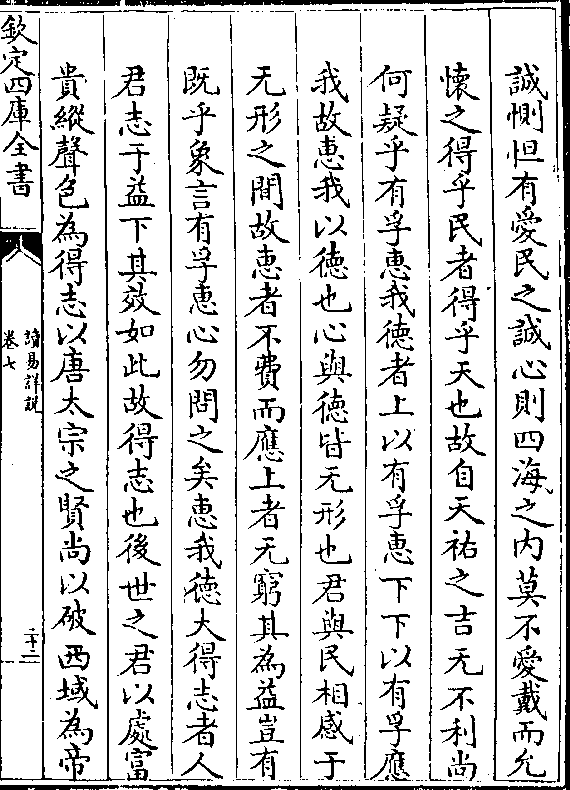 誠惻怛有愛民之誠心則四海之内莫不愛戴而允
懷之得乎民者得乎天也故自天祐之吉无不利尚
何疑乎有孚惠我德者上以有孚惠下下以有孚應
我故惠我以德也心與德皆无形也君與民相感于
无形之間故惠者不費而應上者无窮其為益豈有
既乎象言有孚惠心勿問之矣惠我德大得志者人
君志于益下其效如此故得志也後世之君以處富
貴縱聲色為得志以唐太宗之賢尚以破西域為帝
欽定四庫全書
讀易詳説
卷七
二十二